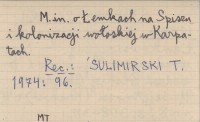 M. in. o Łemkach na Spiszu
i kolonizacji wołoskiej w Karpa-
tach.
Rec.: SULIMIRSKI T.
1974: 96.
MT